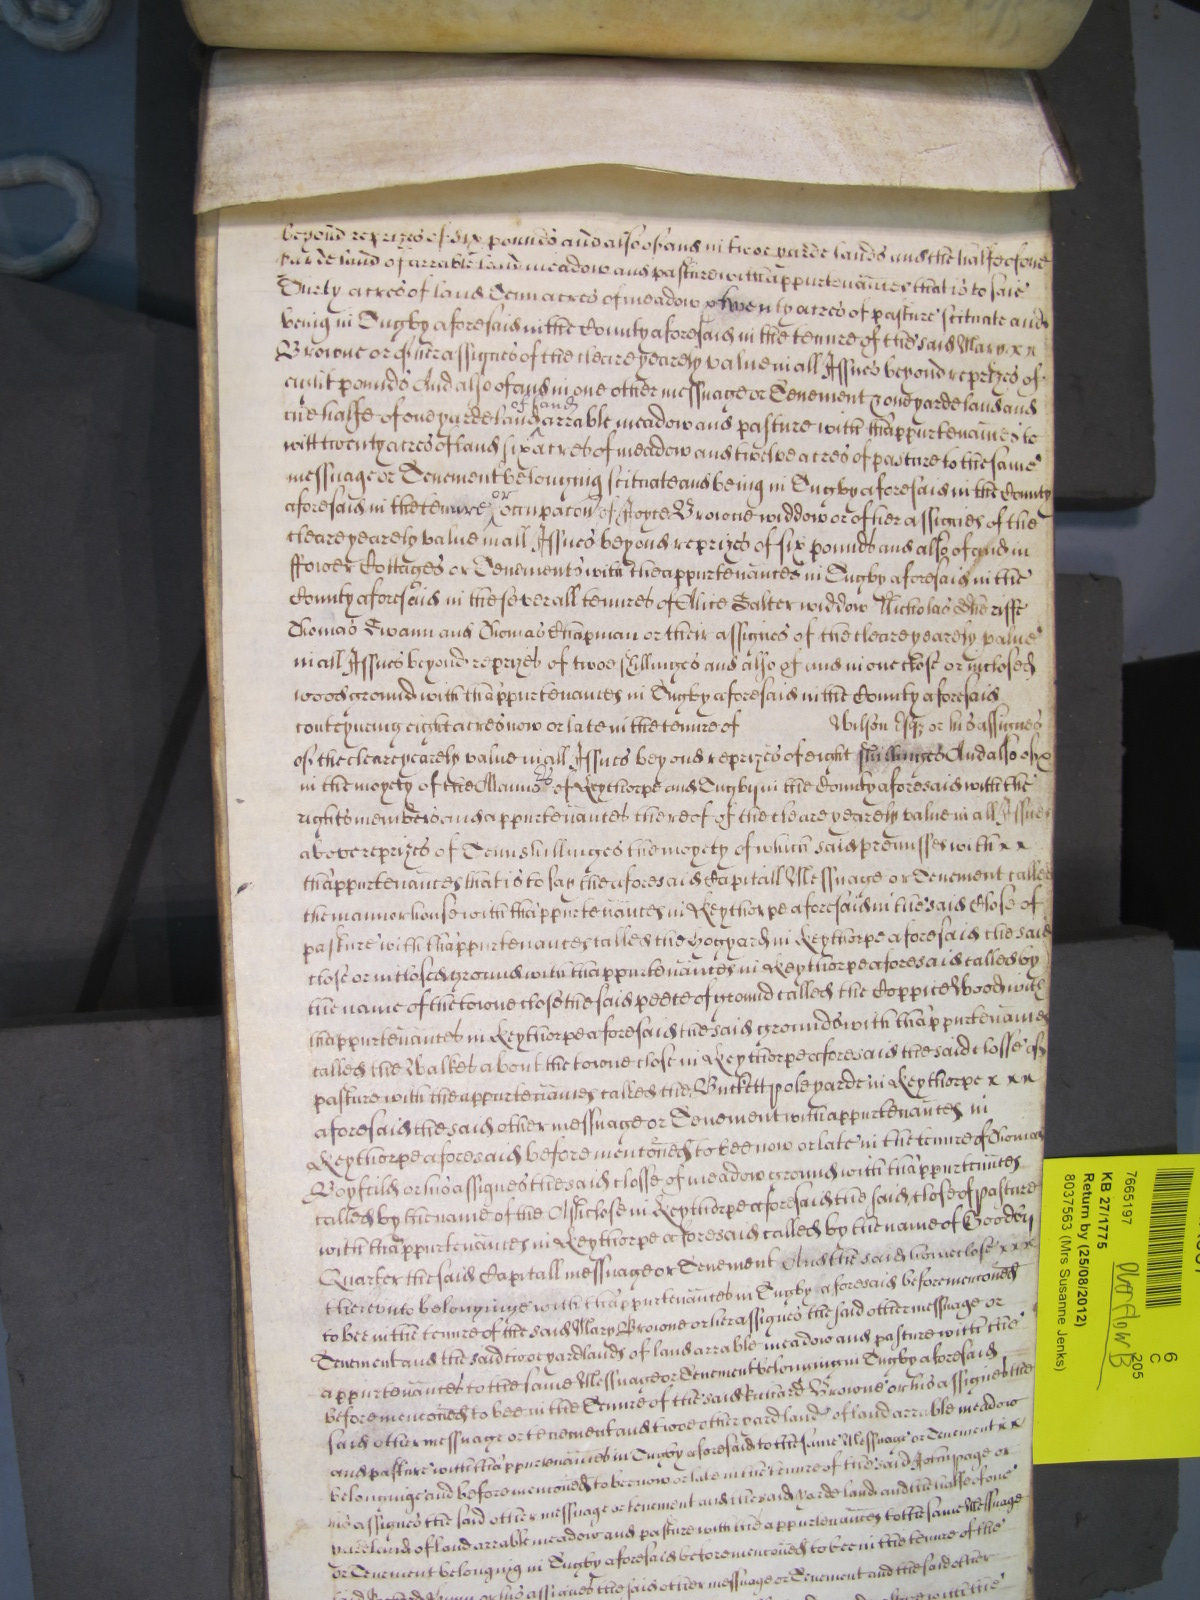 beyond reprizes of six pounds and also of and in twoe yarde lands and the halfe of one
yarde land of arrable land meadow and pasture with thappurtenances that is to saie
Thirty acres of land Tenn acres of meadow & twenty acres of pasture scituate and
being in Tugby aforesaid in the County aforesaid in the tenure of the said Mary x x
Browne or of her assignes of the cleare yearely value in all Issues beyond reprizes of
eight pounds And also of and in one other messuage or Tenement & one yarde land and
the halfe of one yarde land of land arrable meadow and pasture with thappurtenances to
witt twenty acres of land six acres of meadow and twelve acres of pasture to the same
messuage or Tenement belonging scituate and being in Tugby aforesaid in the County
aforesaid in the tenure or occupacon of Joyce Browne widdow or of her assignes of the
cleare yearely value in all Issues beyond reprizes of six pounds and also of and in
ffower Cottages or Tenements with the appurtenances in Tugby aforesaid in the
County aforesaid in the severall tenures of Alice Salter widdow Nicholas Sheriffe
Thomas Swann and Thomas Chapman or their assignes of the cleare yearely value
in all Issues beyond reprizes of twoe shillinges and also of and in one close or inclosed
wood ground with thappurtenances in Tugby aforesaid in the County aforesaid
conteyning eight acres now or late in the tenure of Wilson Esqr or his assignes
of the cleare yearely value in all Issues beyond reprizes of eight shillinges And also of x
in the moyety of the Mannors of Keythorpe and Tugby in the County aforesaid with the
rights members and appurtenances thereof of the cleare yearely value in all Issues
above reprizes of Tenn shillinges the moyety of which said premisses with x x
thappurtenances that is to say the aforesaid Capitall Messuage or Tenement called
the mannor house with thappurtenances in Keythorpe aforesaid in the said Close of
pasture with thappurtenances called the Hogyard in Keythorpe aforesaid the said
close or inclosed ground with thappurtenances in Keythorpe aforesaid called by
the name of the towne close the said peece of ground called the Coppice Wood with
thappurtenances in Keythorpe aforesaid the said grounds with thappurtenances
called the Walkes about the towne close in Keythorpe aforesaid the said closse of
pasture with the appurtenances called the Buckett pole yarde in Keythorpe x x x
aforesaid the said other messuage or Tenement with appurtenances in
Keythorpe aforesaid before mentioned to bee now or late in the tenure of Thomas
Boyfeild or his assignes the said closse of meadow ground with thappurtenances
called by the name of the close in Keythorpe aforesaid the said close of pasture
with thappurtenances in Keythorpe aforesaid called by the name of Goodby
Quarter the said Capitall messuage or Tenement And the said home close x x x
thereunto belonginge with thappurtenances in Tugby aforesaid beforementioned
to bee in the tenure of the said Mary Browne or her assignes the said other messuage or
Tenement and the said twoe yardlands of land arrable meadow and pasture with the
appurtenances to the same Messuage or Tenement belonging in Tugby aforesaid
before mentioned to bee in the Tenure of the said Richard Browne or his assignes the
said other messuage or tenement and twoe other yard land of land arrable meadow
and pasture with thappurtenances in Tugby aforesaid to the same Messuage or Tenement x x
belonginge and before mentioned to bee now or late in the tenure of the said John page or
his assignes the said other messuage or tenement and the said yarde land and the halfe of one
yarde land of land arrable meadow and pasture with the appurtenances to the same Messuage
or Tenement belonging in Tugby aforesaid before mentioned to bee in the tenure of the
said or his assignes the said other messuage or Tenement and the said other
7665197
KB 27/1775
Return by (25/08/2012)
8037563 (Mrs Susanne Jenks)
Overflow B
6
C
205